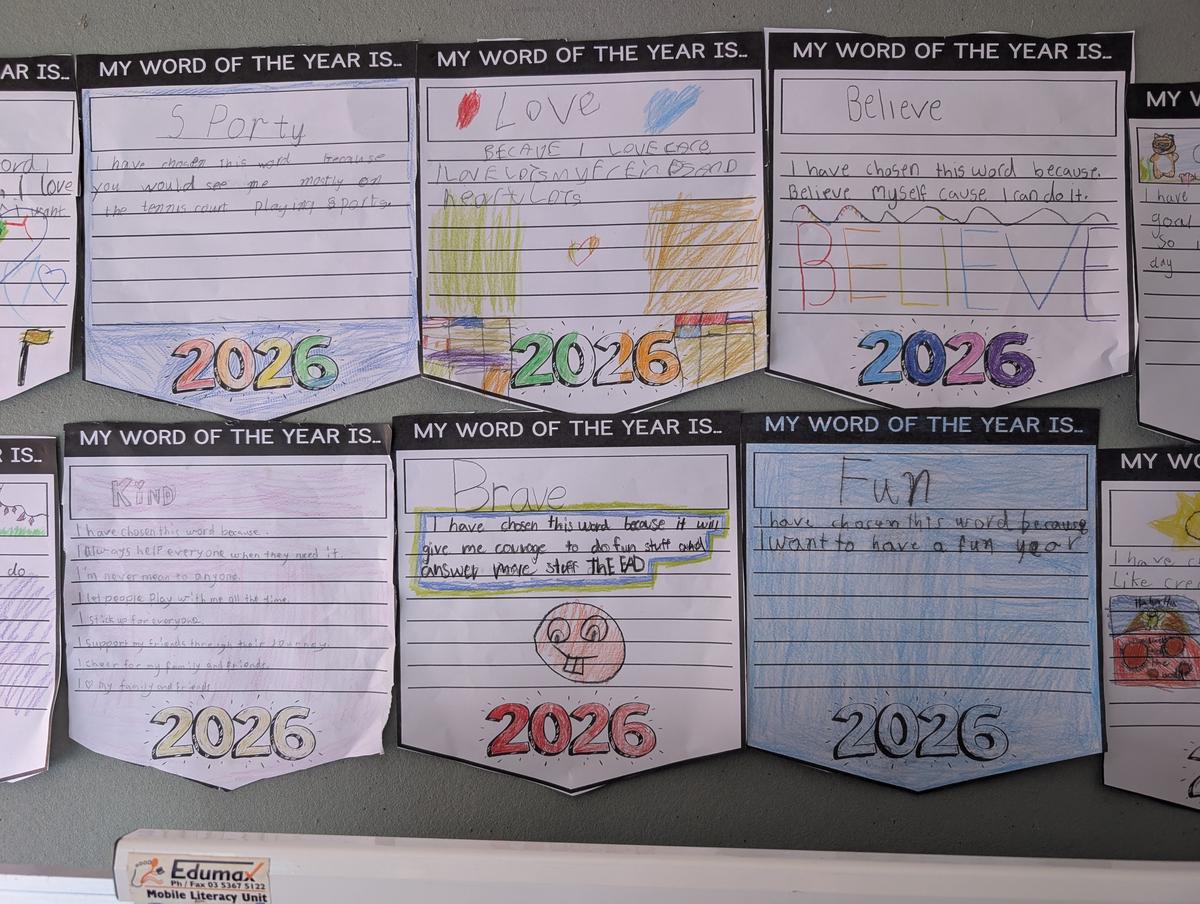 AR IS...
ord I
I love
want
MY WORD OF THE YEAR IS...
S Porty
I have chosen this word because
you would see me mostly on
the tennis court playing sports.
2026
MY WORD OF THE YEAR IS...
Love
BECAUE I LOVE CARE
I LOVE Lots my frein
heart Lots
2026
MY WORD OF THE YEAR IS...
Believe
I have chosen this word because.
Believe Myself cause I can do it.
BELIEVE
2026
MY W
I have
goal
So I
day
R IS...
do.
MY WORD OF THE YEAR IS...
KiND
I have chosen this word because.
I always help everyone when they need it.
I'm never mean to anyone.
I let people Play with me all the time.
I stick up for everyone.
I support my friends through their Journey.
I cheer for my family and friends.
I ♡ my family and friends
2026
MY WORD OF THE YEAR IS...
Brave
I have chosen this word because it will
give me courage to do fun stuff and
answer more stuff ThE EAD
2026
MY WORD OF THE YEAR IS...
Fun
I have chosen this word because
I want to have a fun year
2026
MY WO
I have c
Like cre
Edumax
Ph / Fax 03 5367 5122
Mobile Literacy Unit